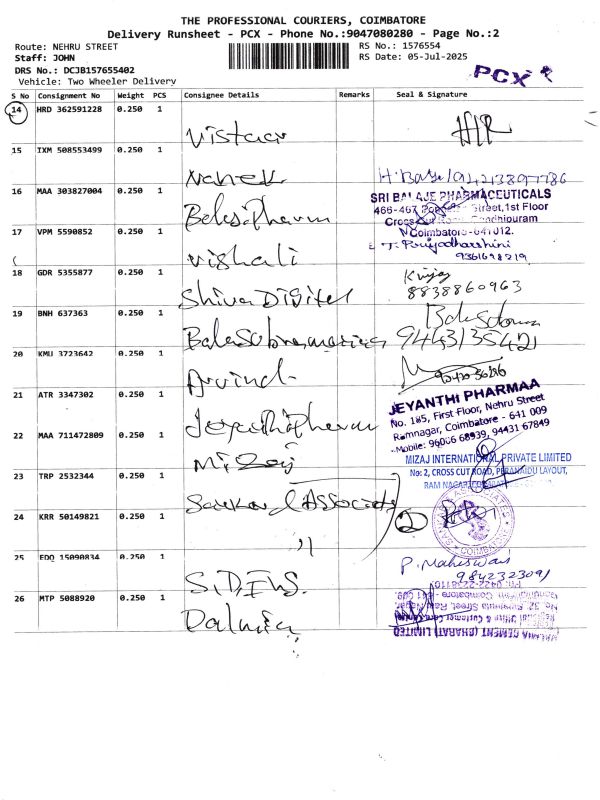 THE PROFESSIONAL COURIERS, COIMBATORE
Delivery Runsheet - PCX - Phone No.:9047080280 - Page No.:2
Route: NEHRU STREET
RS No.: 1576554
Staff: JOHN
RS Date: 05-Jul-2025
DRS No.: DCJB157655402
PCX
Vehicle: Two Wheeler Delivery
S No Consignment No Weight PCS Consignee Details Remarks Seal & Signature
14 HRD 362591228 0.250 1
Vistaar
15 IXM 508553499 0.250 1
16 MAA 303827004 0.250 1
SRI BALAJE PHARMACEUTICALS
466-467 Street,1st Floor
Cross Gandhipuram
Coimbatore-641012.
17 VPM 5590852 0.250 1
vishali
T. Priyadharshini
9361698219
18 GDR 5355877 0.250 1
Shiva Digital
8838860963
19 BNH 637363 0.250 1
Balasubramaniam
9443135421
20 KMU 3723642 0.250 1
Arvind
21 ATR 3347302 0.250 1
JEYANTHI PHARMAA
No. 185, First Floor, Nehru Street
Ramnagar, Coimbatore - 641 009
Mobile: 96006 68939, 94431 67849
22 MAA 711472809 0.250 1
Mizaj
MIZAJ INTERNATIONAL PRIVATE LIMITED
No: 2, CROSS CUT ROAD, PERANAIDU LAYOUT,
RAM NAGAR, COIMBATORE
23 TRP 2532344 0.250 1
Sankar & Associates
24 KRR 50149821 0.250 1
2
COIMBATORE
25 EDQ 15090834 0.250 1
S.D.F.S.
P. Maheswari
9842323091
26 MTP 5088920 0.250 1
Dalmia
DALMIA CEMENT (BHARAT) LIMITED